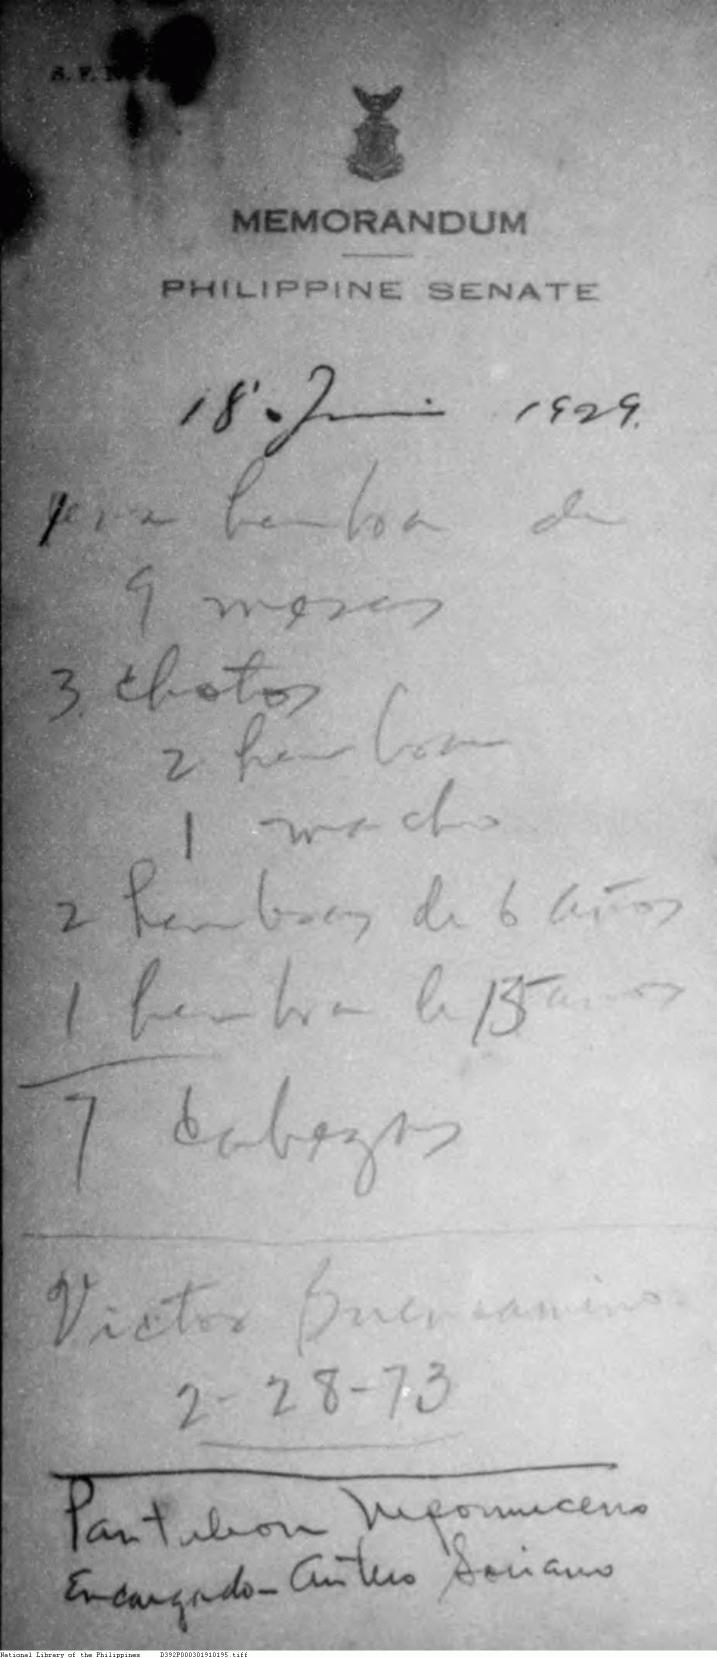 S. F. No.
MEMORANDUM
PHILIPPINE SENATE
18. Juni 1929.
hembra de
9 meses
3. chotos
2 hembras
1 macho
2 hembras de 6 años
1 hembra de 15 años
7 Cabezas
Victor Buencamino
2-28-73
Pantaleon Nepomuceno
Encargado - Antero Soriano
National Library of the Philippines D392P000301910195.tiff